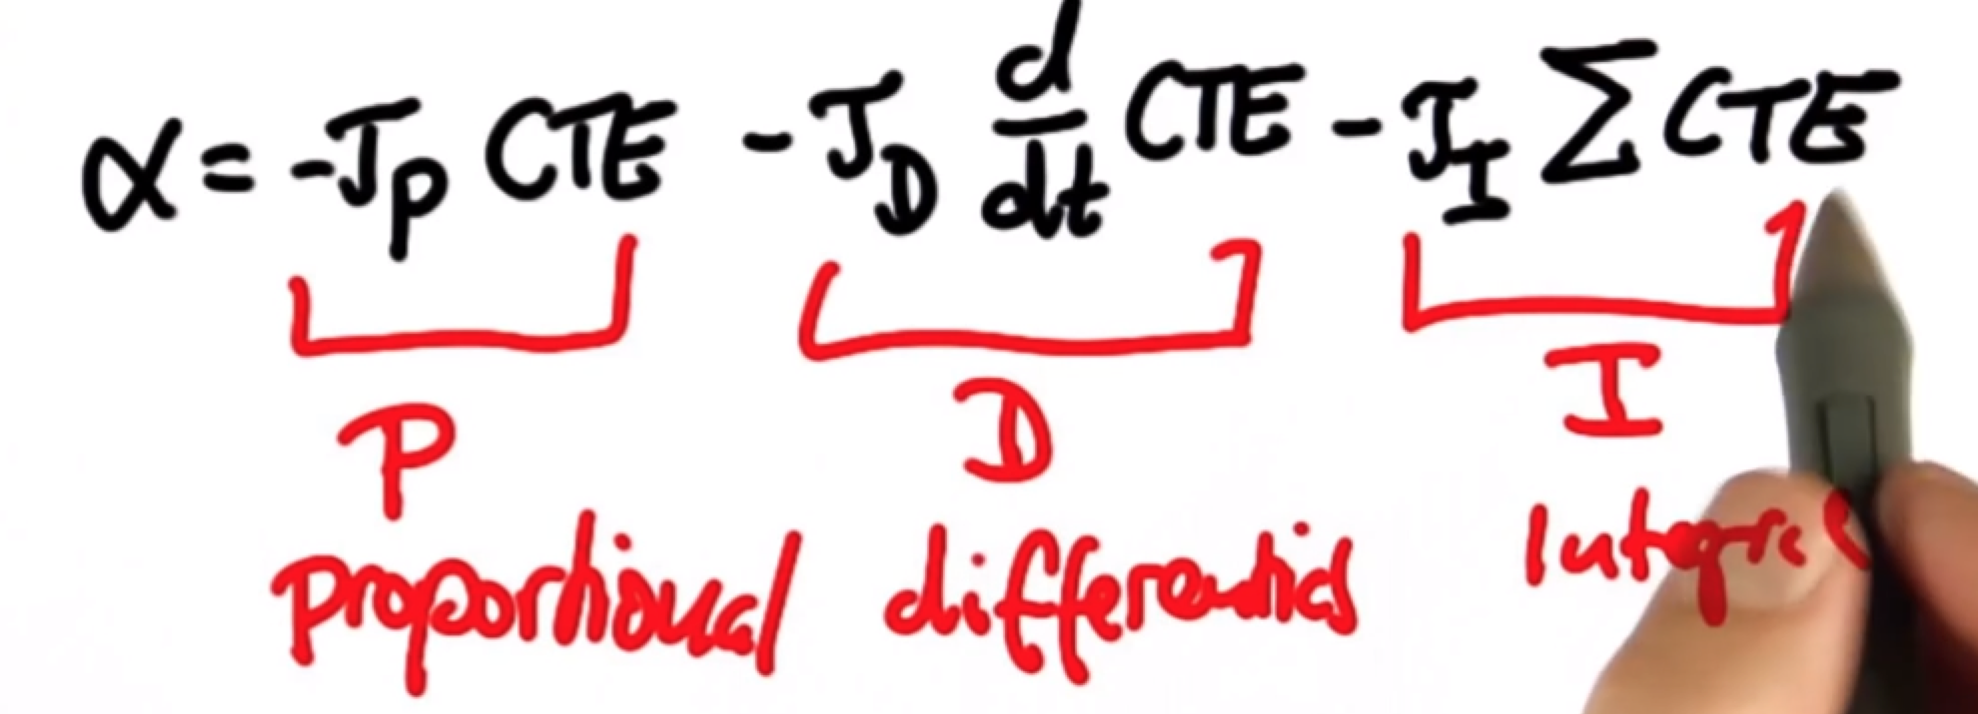 α = -τP CTE - τD d/dt CTE - τI Σ CTE
P D I
proportional differential Integral